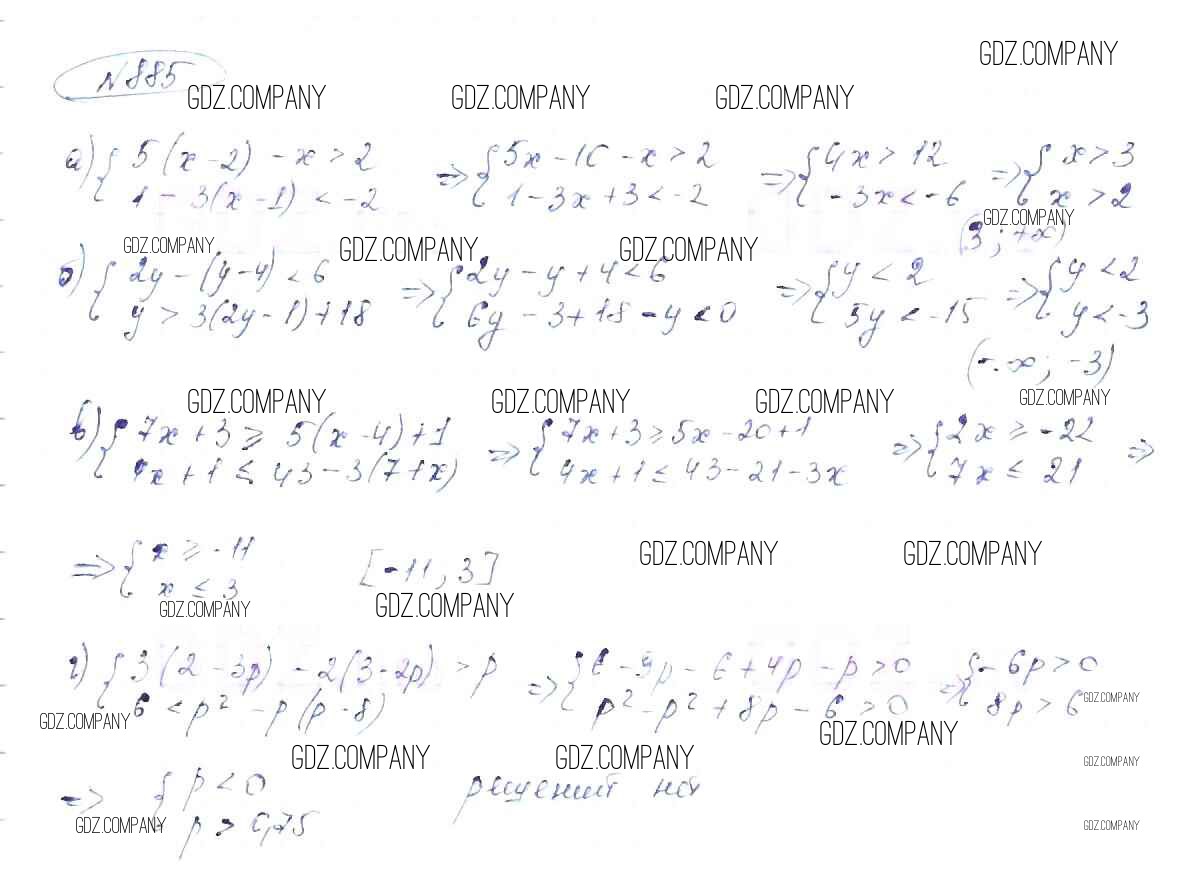 GDZ.COMPANY
№885
GDZ.COMPANY GDZ.COMPANY GDZ.COMPANY
а) { 5(x-2) - x > 2 => { 5x - 10 - x > 2 => { 4x > 12 => { x > 3
1 - 3(x-1) < -2 1 - 3x + 3 < -2 - 3x < -6 x > 2
GDZ.COMPANY
(3; +∞)
GDZ.COMPANY GDZ.COMPANY GDZ.COMPANY
б) { 2y - (y-4) < 6 => { 2y - y + 4 < 6 => { y < 2 => { y < 2
y > 3(2y-1) + 18 6y - 3 + 18 - y < 0 5y < -15 y < -3
(-∞; -3)
GDZ.COMPANY GDZ.COMPANY GDZ.COMPANY GDZ.COMPANY
в) { 7x + 3 ≥ 5(x-4) + 1 => { 7x + 3 ≥ 5x - 20 + 1 => { 2x ≥ -22 =>
4x + 1 ≤ 43 - 3(7+x) 4x + 1 ≤ 43 - 21 - 3x 7x ≤ 21
=> { x ≥ -11 [-11; 3] GDZ.COMPANY GDZ.COMPANY
x ≤ 3
GDZ.COMPANY GDZ.COMPANY
г) { 3(2-3p) - 2(3-2p) > p => { 6 - 9p - 6 + 4p - p > 0 => { -6p > 0
6 < p² - p(p-8) p² - p² + 8p - 6 > 0 8p > 6
GDZ.COMPANY GDZ.COMPANY GDZ.COMPANY
GDZ.COMPANY GDZ.COMPANY GDZ.COMPANY
=> { p < 0 решений нет
p > 0,75
GDZ.COMPANY GDZ.COMPANY